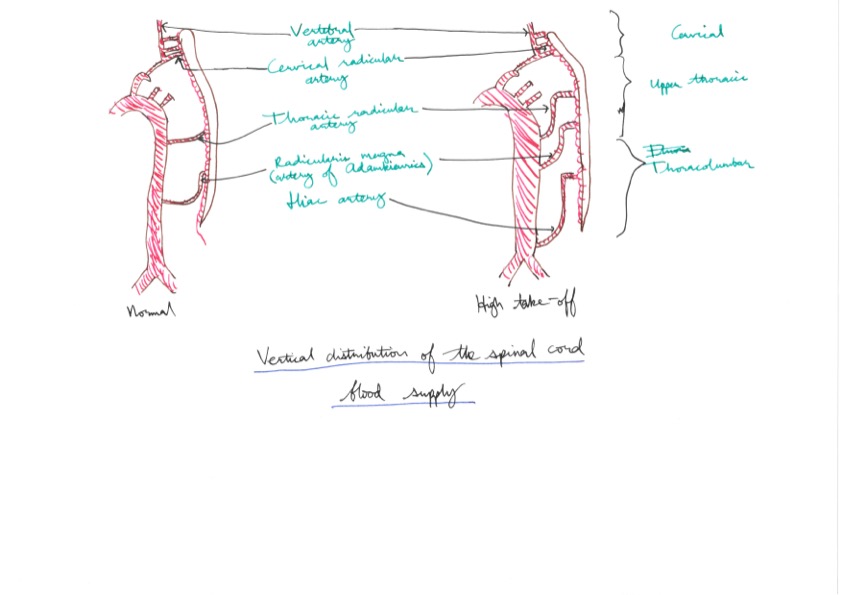 Vertebral
artery
Cervical radicular
artery
Thoracic radicular
artery
Radicularis magna
(artery of Adamkiewics)
Iliac artery
Cervical
Upper thoracic
Thoracolumbar
Normal
High take-off
Vertical distribution of the spinal cord
blood supply